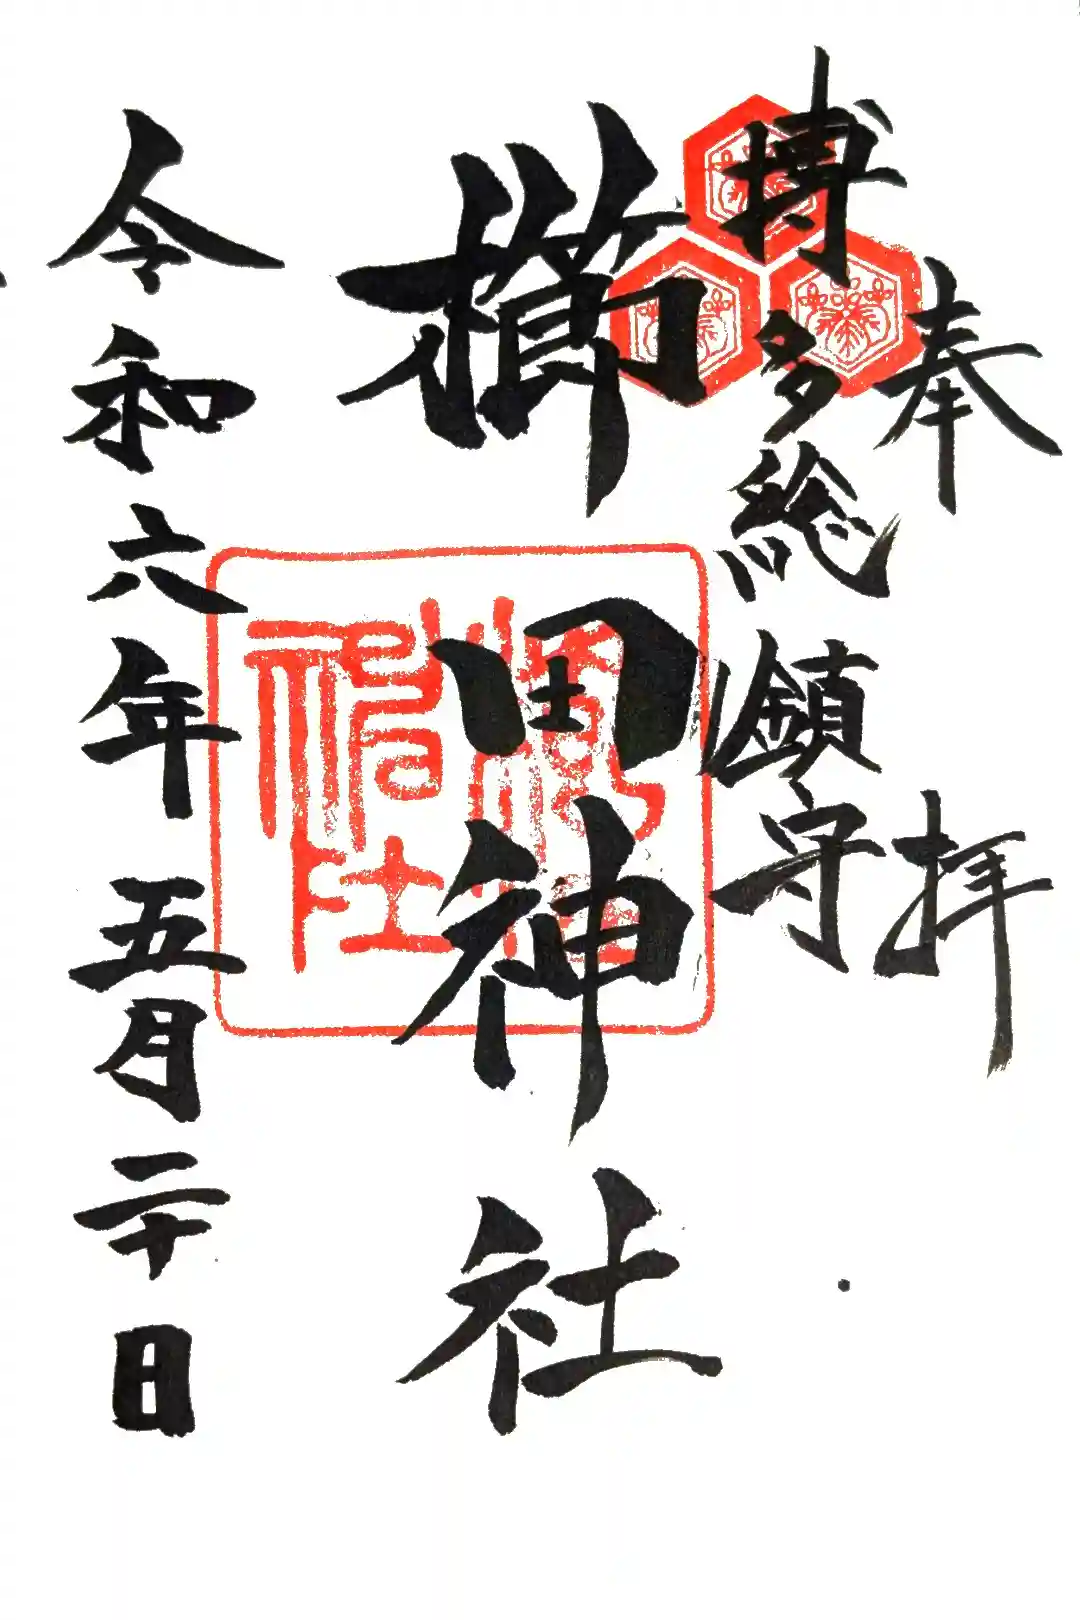 奉拝
博多総鎮守
櫛田神社
令和六年五月二十日
櫛田神社